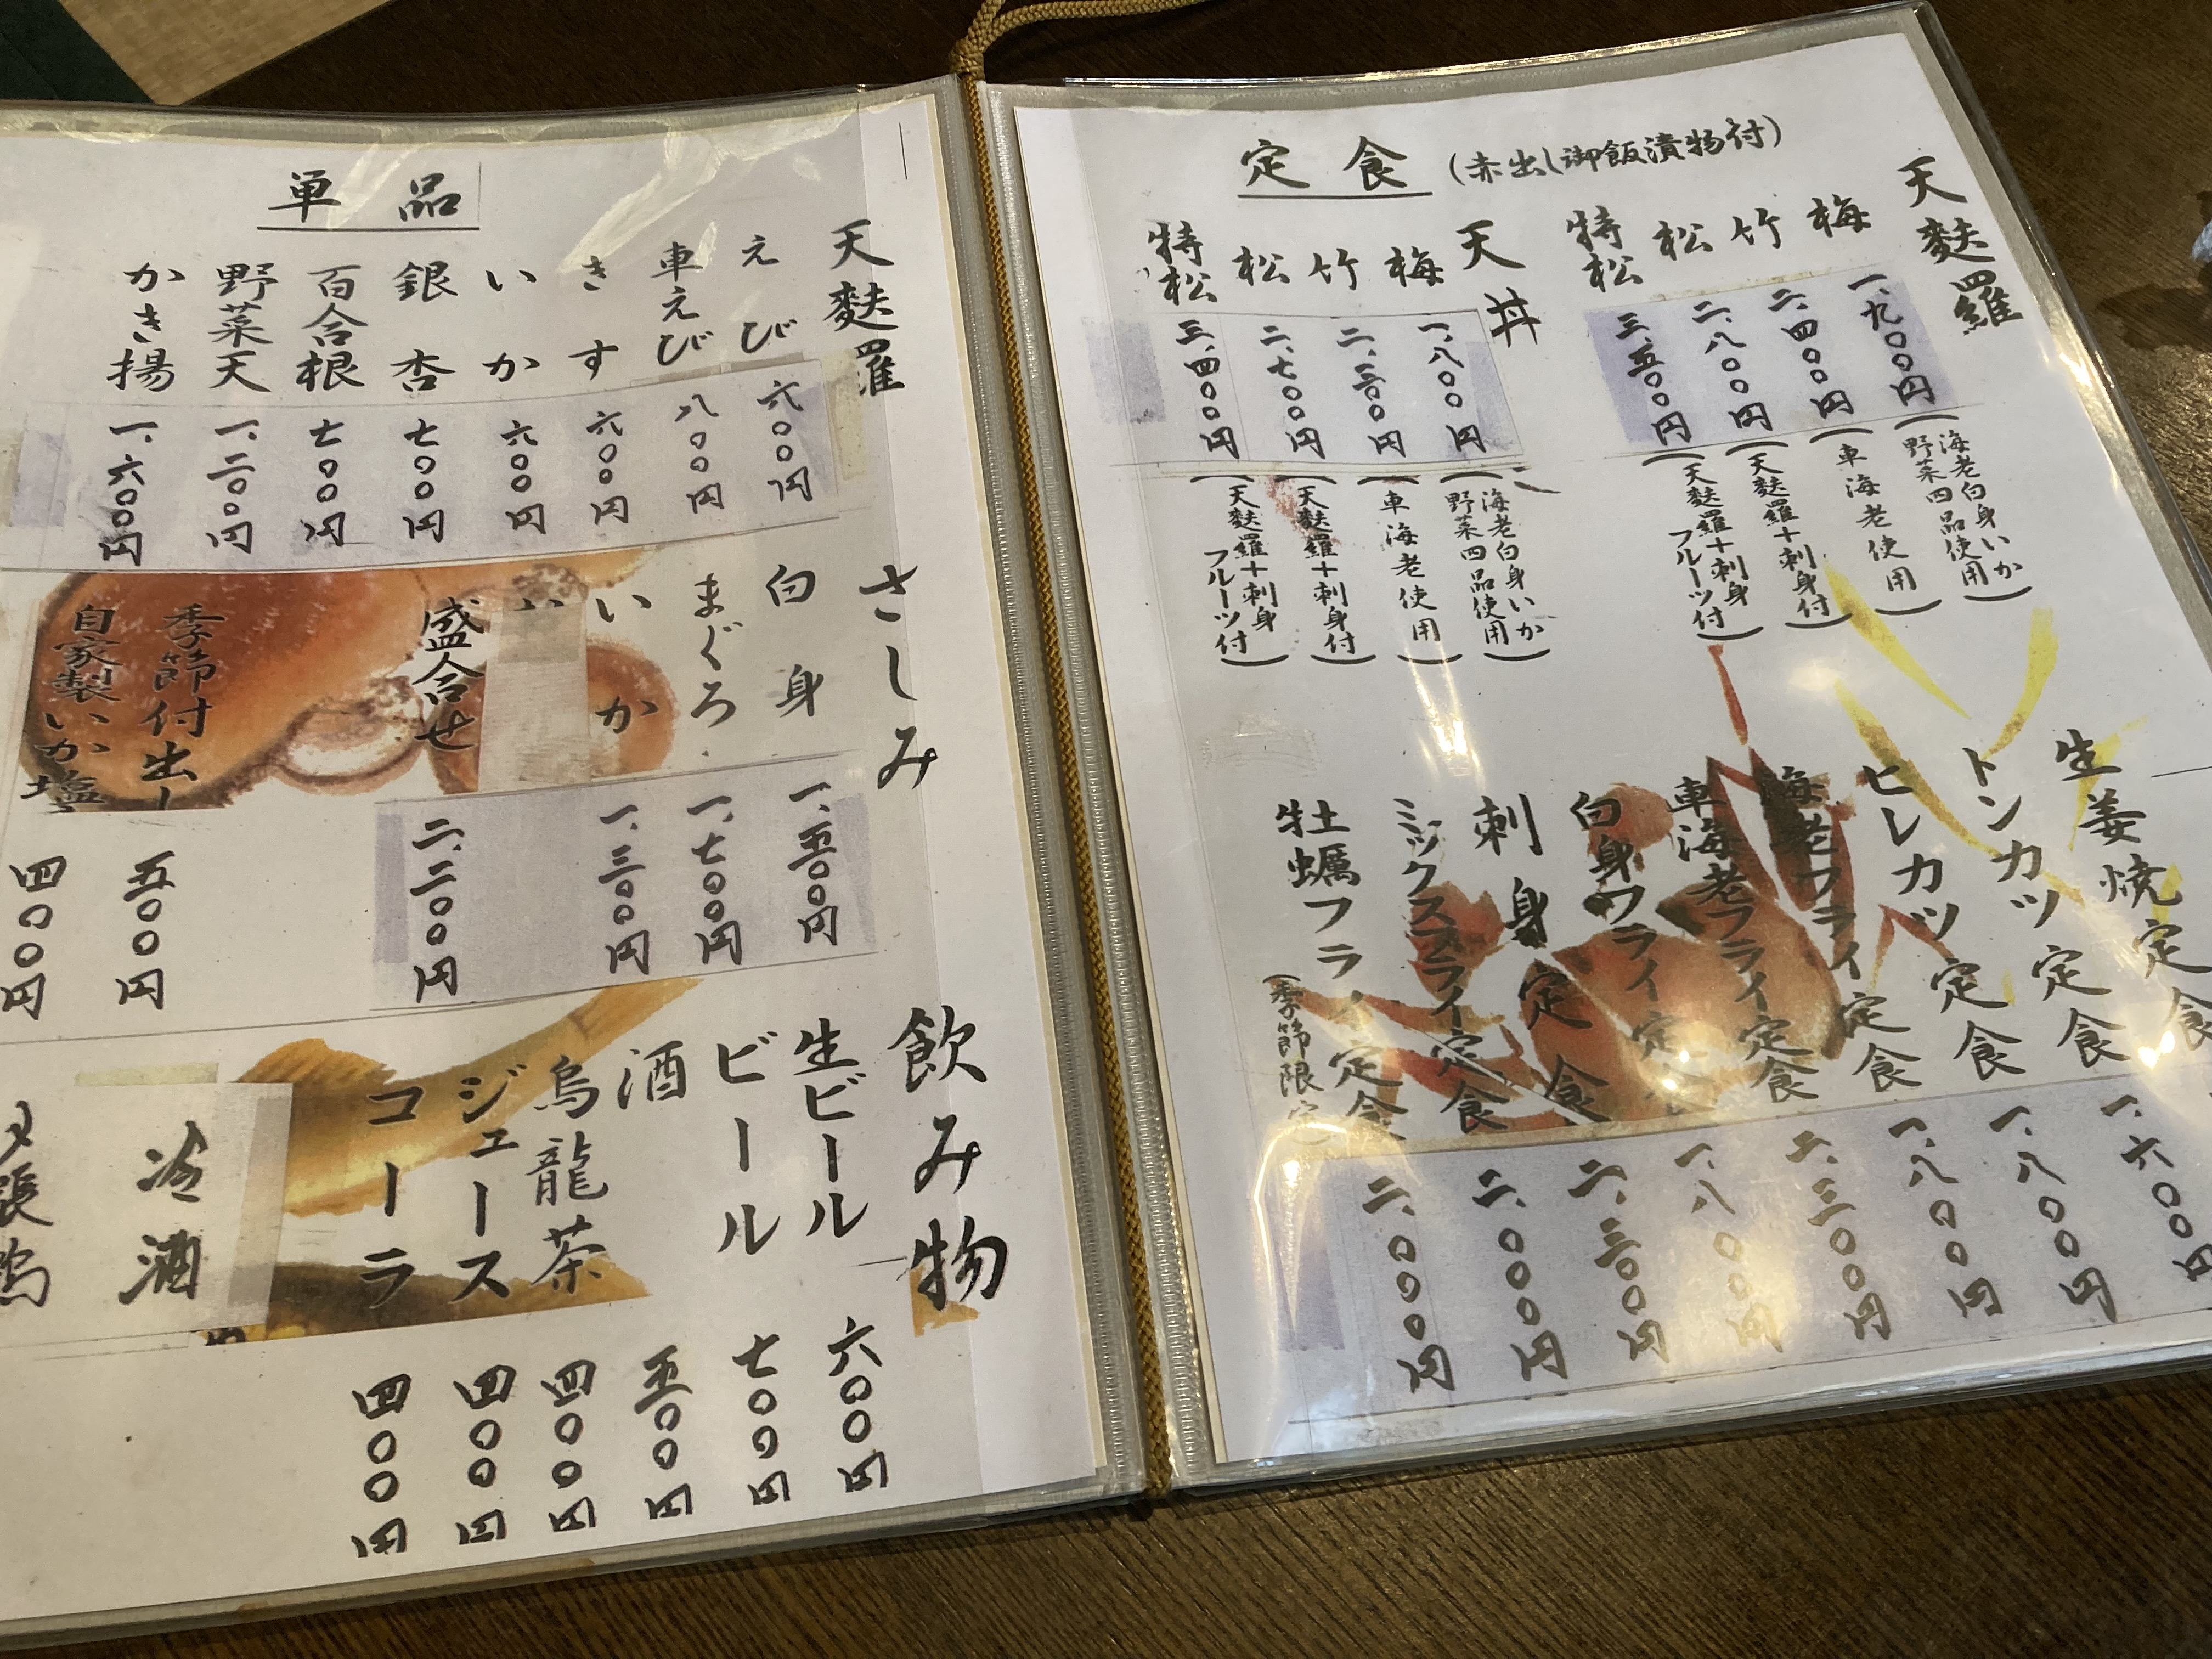 定食 (赤出し御飯漬物付)
天麩羅
梅 一、九〇〇円 (海老白身いか野菜四品使用)
竹 二、四〇〇円 (車海老使用)
松 二、八〇〇円 (天麩羅+刺身付)
特松 三、五〇〇円 (天麩羅+刺身フルーツ付)
天丼
梅 一、八〇〇円 (海老白身いか野菜四品使用)
竹 二、三〇〇円 (車海老使用)
松 二、七〇〇円 (天麩羅+刺身付)
特松 三、四〇〇円 (天麩羅+刺身フルーツ付)
生姜焼定食 一、六〇〇円
トンカツ定食 一、八〇〇円
ヒレカツ定食 一、八〇〇円
海老フライ定食 二、三〇〇円
車海老フライ定食 一、八〇〇円
白身フライ定食 二、三〇〇円
刺身定食 二、〇〇〇円
ミックスフライ定食 二、〇〇〇円
牡蠣フライ定食
(季節限定)
単品
天麩羅
えび 六〇〇円
車えび 八〇〇円
きす 六〇〇円
いか 六〇〇円
銀杏 七〇〇円
百合根 七〇〇円
野菜天 一、二〇〇円
かき揚 一、六〇〇円
さしみ
白身 一、五〇〇円
まぐろ 一、七〇〇円
いか 一、三〇〇円
盛合せ 二、二〇〇円
季節付出し 五〇〇円
自家製いか塩 四〇〇円
飲み物
生ビール 六〇〇円
ビール 七〇〇円
酒 五〇〇円
烏龍茶 四〇〇円
ジュース 四〇〇円
コーラ 四〇〇円
冷酒